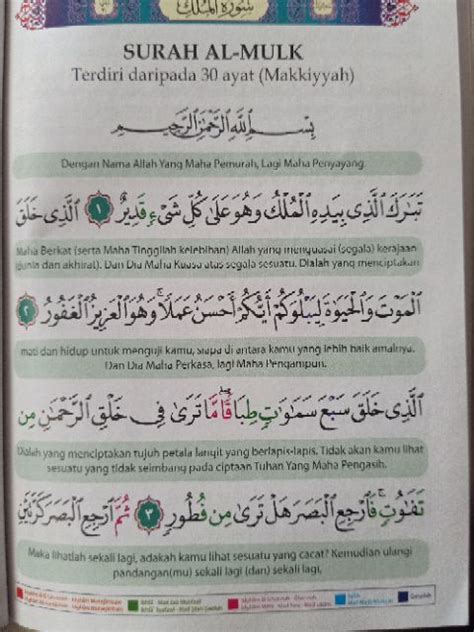 سورة الملك
SURAH AL-MULK
Terdiri daripada 30 ayat (Makkiyyah)
بِسْمِ ٱللَّهِ ٱلرَّحْمَٰنِ ٱلرَّحِيمِ
Dengan Nama Allah Yang Maha Pemurah, Lagi Maha Penyayang.
تَبَٰرَكَ ٱلَّذِى بِيَدِهِ ٱلْمُلْكُ وَهُوَ عَلَىٰ كُلِّ شَىْءٍ قَدِيرٌ ١ ٱلَّذِى خَلَقَ
Maha Berkat (serta Maha Tinggilah kelebihan) Allah yang menguasai (segala) kerajaan
(dunia dan akhirat). Dan Dia Maha Kuasa atas segala sesuatu. Dialah yang menciptakan
ٱلْمَوْتَ وَٱلْحَيَوٰةَ لِيَبْلُوَكُمْ أَيُّكُمْ أَحْسَنُ عَمَلًا ۚ وَهُوَ ٱلْعَزِيزُ ٱلْغَفُورُ ٢
mati dan hidup untuk menguji kamu, siapa di antara kamu yang lebih baik amalnya.
Dan Dia Maha Perkasa, lagi Maha Pengampun.
ٱلَّذِى خَلَقَ سَبْعَ سَمَٰوَٰتٍ طِبَاقًا ۖ مَّا تَرَىٰ فِى خَلْقِ ٱلرَّحْمَٰنِ مِن
Dialah yang menciptakan tujuh petala langit yang berlapis-lapis. Tidak akan kamu lihat
sesuatu yang tidak seimbang pada ciptaan Tuhan Yang Maha Pengasih.
تَفَٰوُتٍ ۖ فَٱرْجِعِ ٱلْبَصَرَ هَلْ تَرَىٰ مِن فُطُورٍ ٣ ثُمَّ ٱرْجِعِ ٱلْبَصَرَ كَرَّتَيْنِ
Maka lihatlah sekali lagi, adakah kamu lihat sesuatu yang cacat? Kemudian ulangi
pandangan(mu) sekali lagi (dan) sekali lagi,